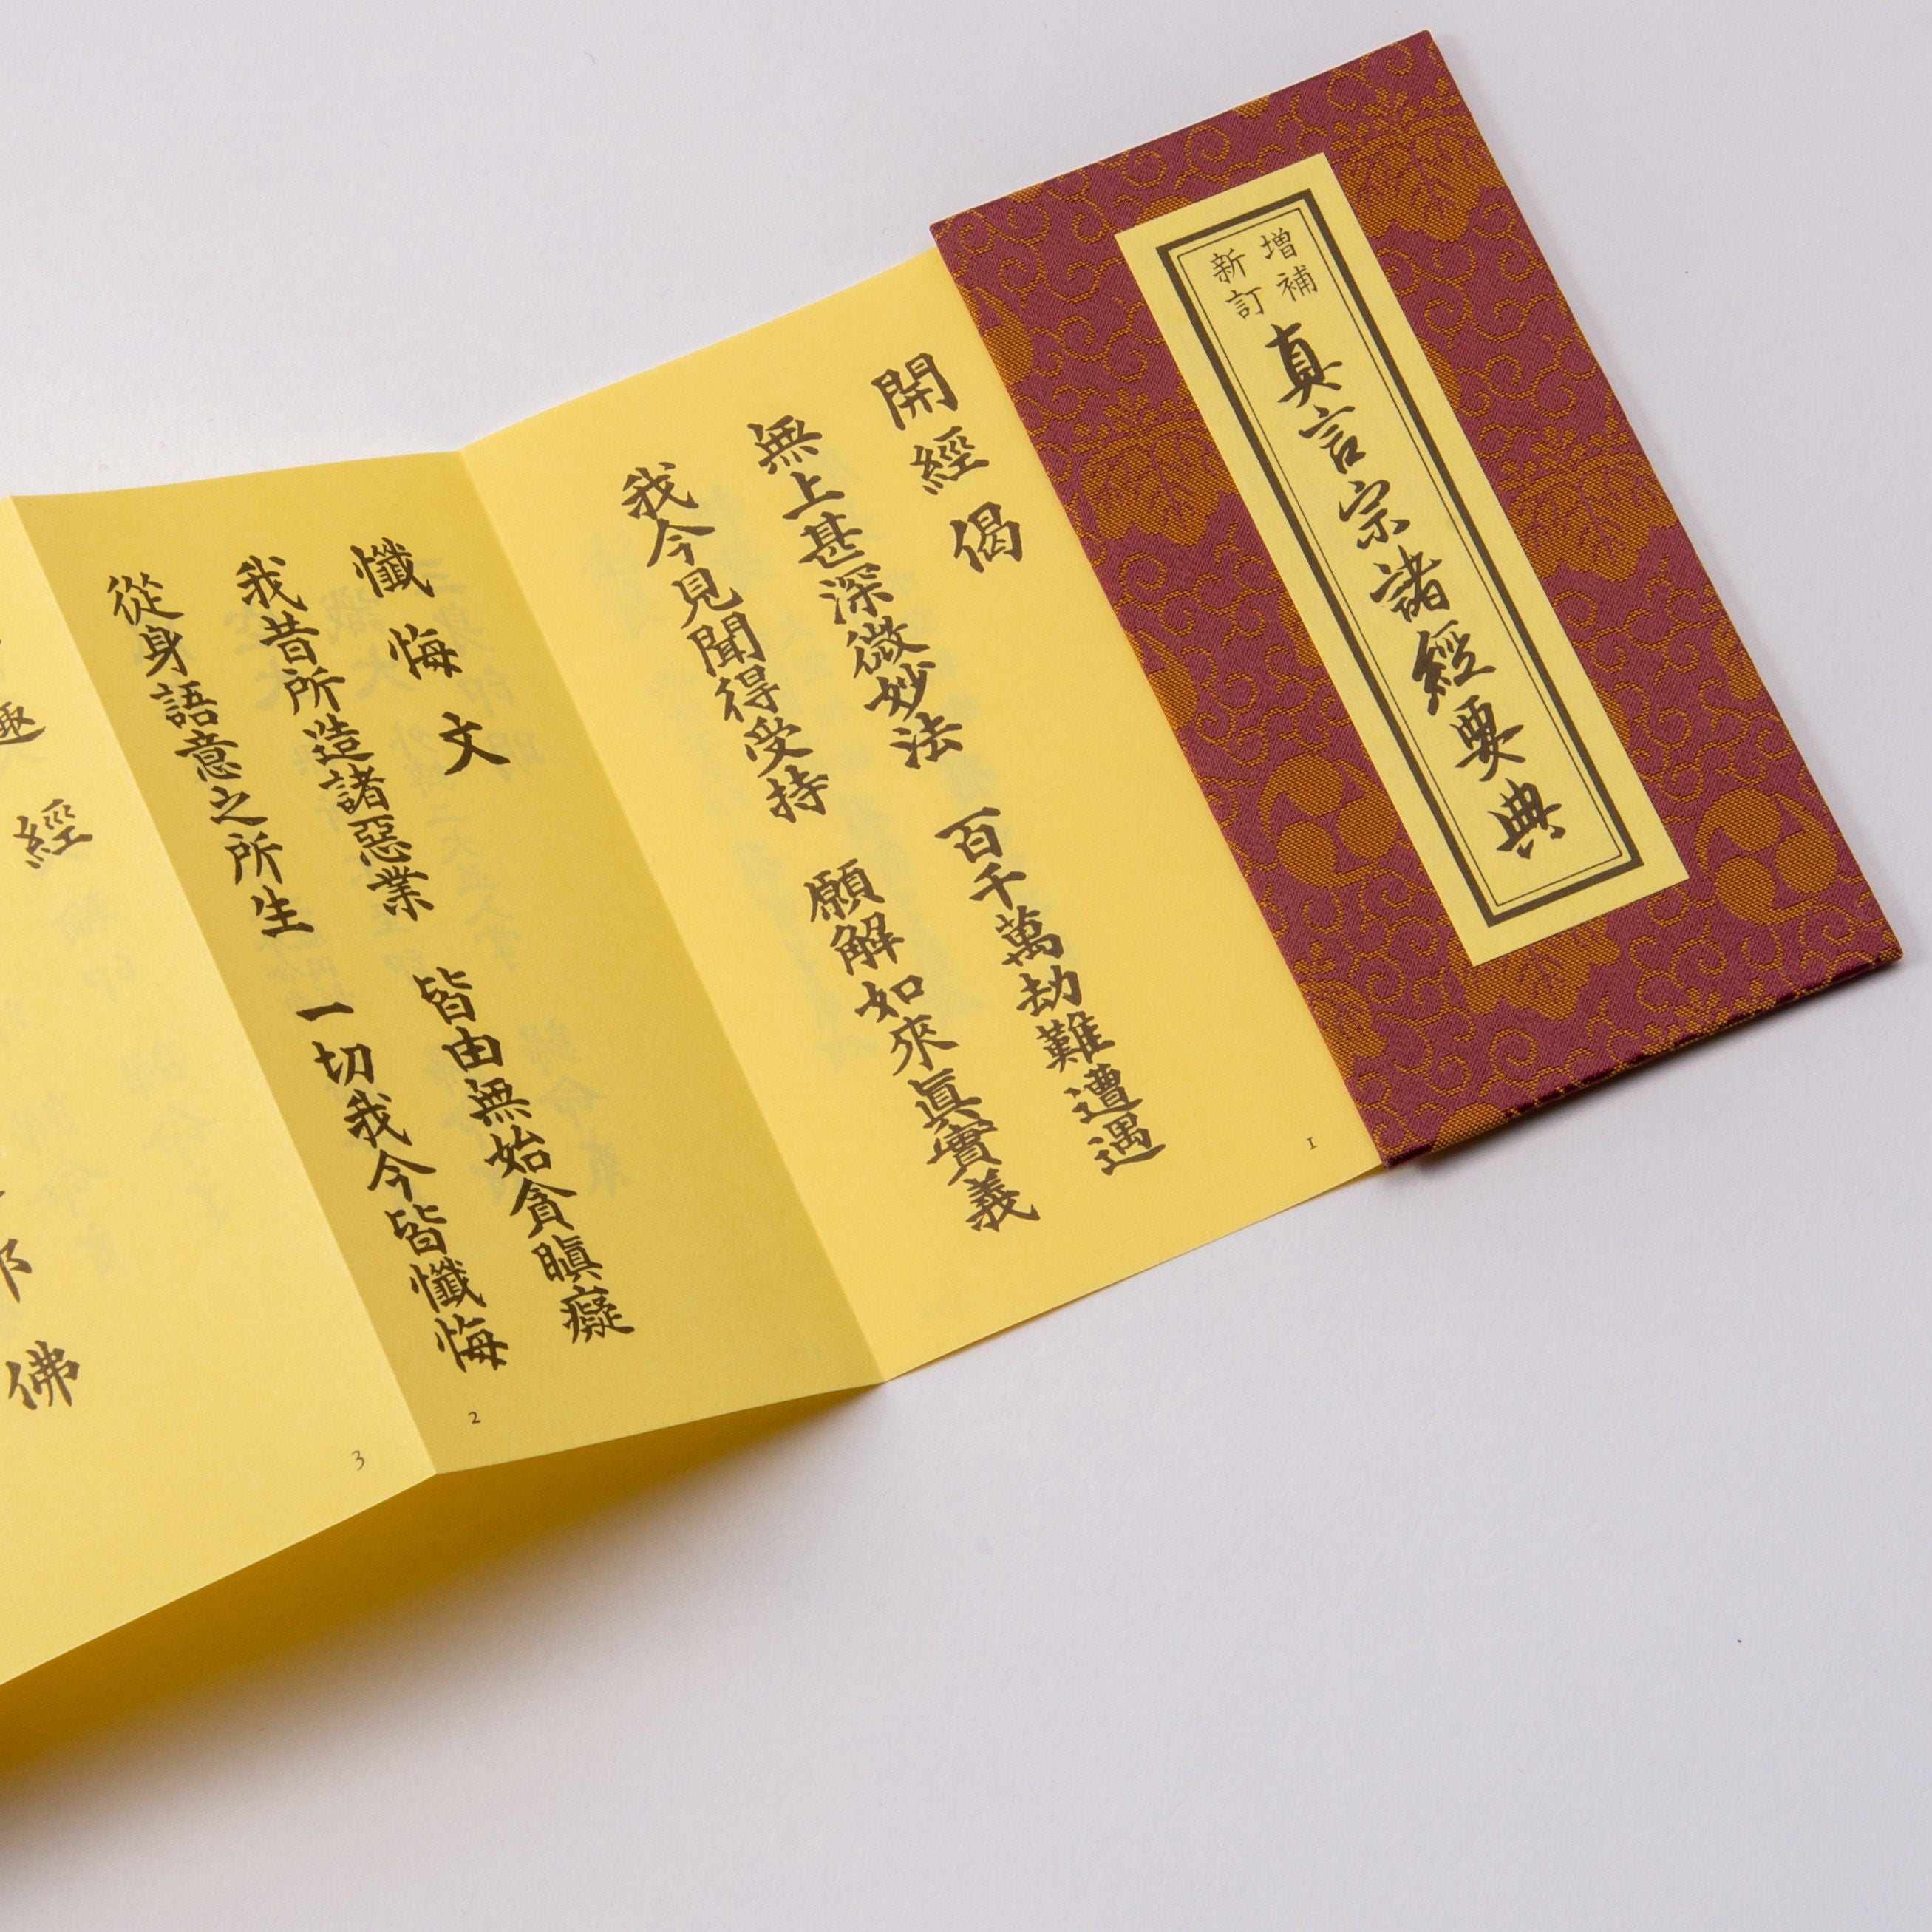 増補
新訂
真言宗諸經要典
開經偈
無上甚深微妙法 百千萬劫難遭遇
我今見聞得受持 願解如來眞實義
1
懺悔文
我昔所造諸惡業 皆由無始貪瞋癡
從身語意之所生 一切我今皆懺悔
2
趣經
佛
3